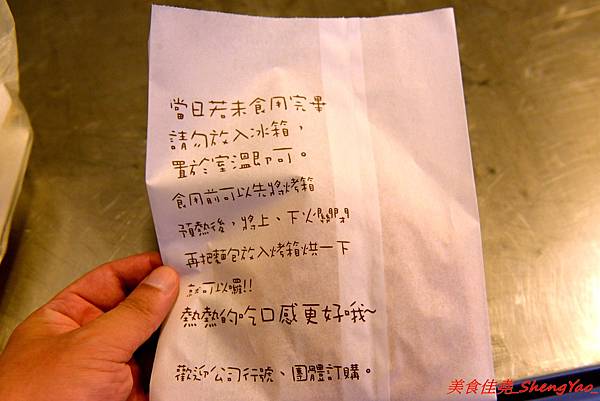 當日若未食用完畢
請勿放入冰箱，
置於室溫即可。
食用前可以先將烤箱
預熱後，將上、下火關閉
再把麵包放入烤箱烘一下
就可以囉!!
熱熱的吃口感更好哦~
歡迎公司行號、團體訂購。
美食佳亮_ShengYao_